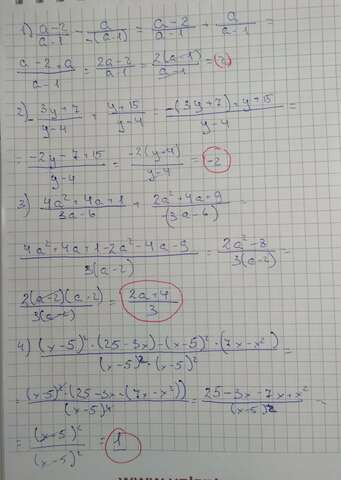 1) (a-2)/(a-1) - a/(-(a-1)) = (a-2)/(a-1) + a/(a-1) =
(a-2+a)/(a-1) = (2a-2)/(a-1) = 2(a-1)/(a-1) = 2
2) -(3y+7)/(y-4) + (y+15)/(y-4) = (-(3y+7)+y+15)/(y-4) =
= (-2y-7+15)/(y-4) = -2(y-4)/(y-4) = -2
3) (4a²+4a+1)/(3a-6) + (2a²+4a+9)/(3a-6) =
(4a²+4a+1-2a²-4a-9)/(3(a-2)) = (2a²-8)/(3(a-2)) =
2(a-2)(a+2)/(3(a-2)) = (2a+4)/3
4) ((x-5)²·(25-3x)-(x-5)²·(7x-x²))/((x-5)²·(x-5)²) =
= ((x-5)²·(25-3x-(7x-x²)))/(x-5)⁴ = (25-3x-7x+x²)/(x-5)² =
= (x-5)²/(x-5)² = 1